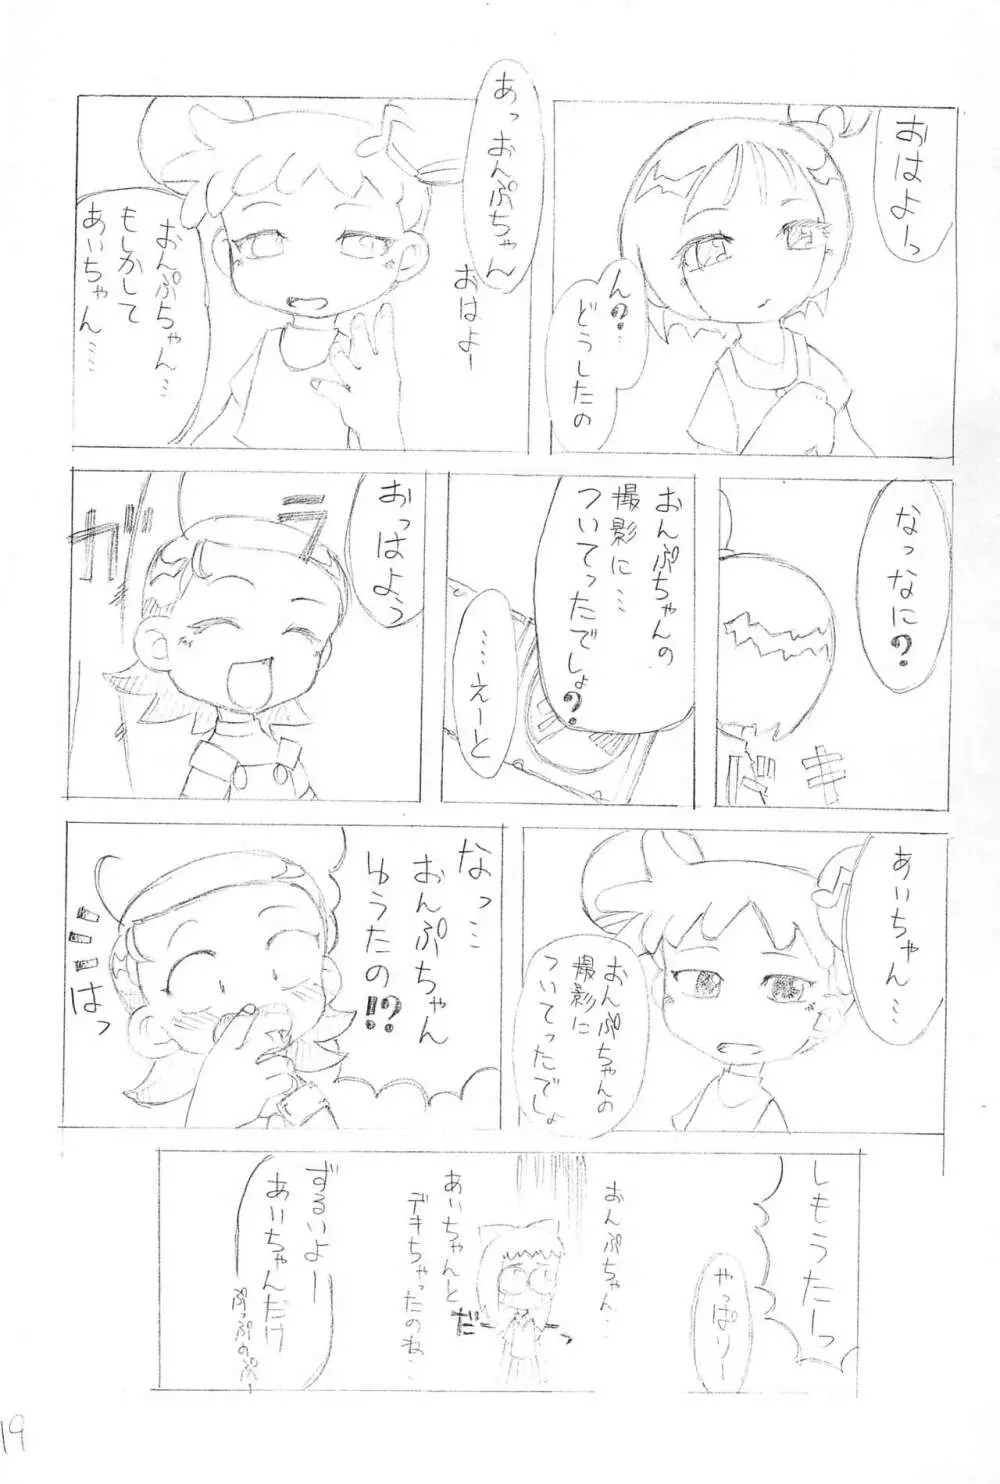 おはよーっ
ん？…
どうしたの
あっおんぷちゃん
おはよー
おんぷちゃん…
もしかして
あいちゃん……
なっなに？
ギ
おんぷちゃんの
撮影に…
ついてったでしょ？
……えーと
おっはよう
ガラ
あいちゃん…
おんぷちゃんの
撮影に
ついてったでしょ
なっ…
おんぷちゃん
ゆうたの!?
はっ
しもうたーっ
やっぱりー
おんぷちゃん…
あいちゃんと
デキちゃったのね…
だーっ
ずるいよー
あいちゃんだけ
ぷっぷのぷー
19